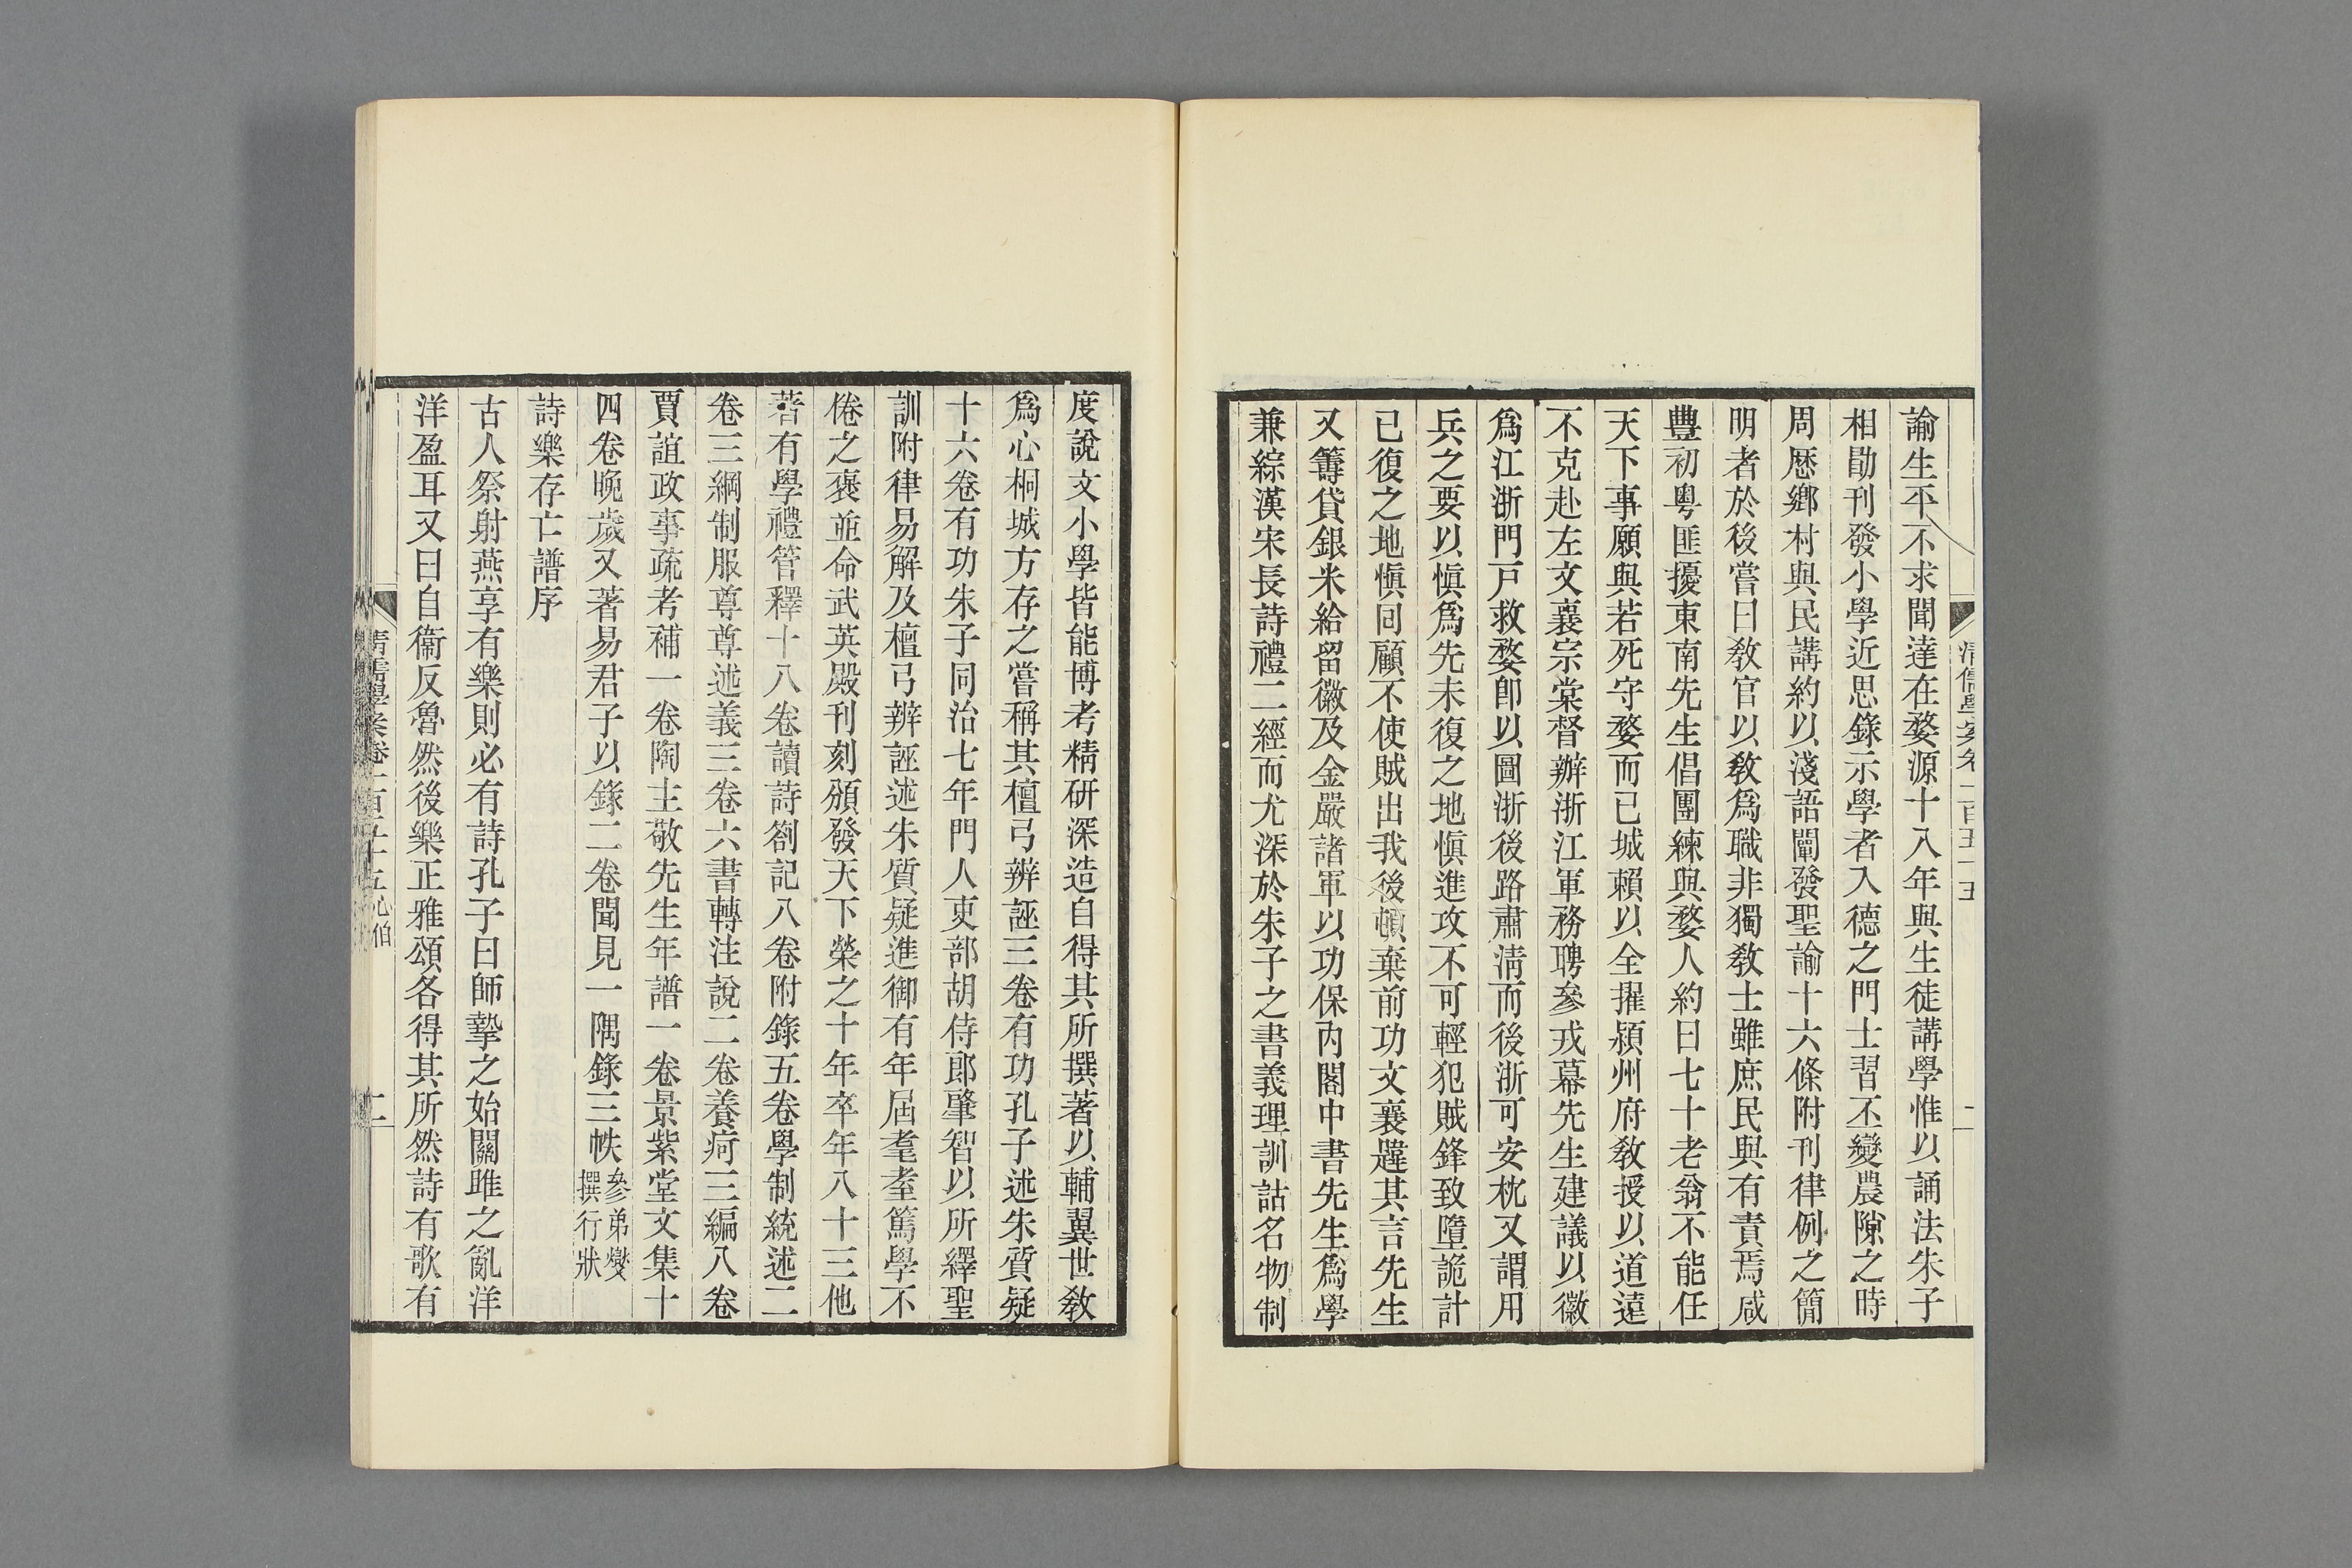 諭生平不求聞達在婺源十八年與生徒講學惟以誦法朱子
相勖刊發小學近思錄示學者入德之門士習丕變農隙之時
周歷鄉村與民講約以淺語闡發聖諭十六條附刊律例之簡
明者於後嘗曰教官以教爲職非獨教士雖庶民與有責焉咸
豐初粵匪擾東南先生倡團練與婺人約曰七十老翁不能任
天下事願與若死守婺而已城賴以全擢潁州府教授以道遠
不克赴左文襄宗棠督辦浙江軍務聘參戎幕先生建議以徽
爲江浙門戸救婺卽以圖浙後路肅淸而後浙可安枕又謂用
兵之要以愼爲先未復之地愼進攻不可輕犯賊鋒致墮詭計
已復之地愼囘顧不使賊出我後頓棄前功文襄韙其言先生
又籌貸銀米給留徽及金嚴諸軍以功保內閣中書先生爲學
兼綜漢宋長詩禮二經而尤深於朱子之書義理訓詁名物制
度說文小學皆能博考精研深造自得其所撰著以輔翼世敎
爲心桐城方存之嘗稱其檀弓辨誣三卷有功孔子述朱質疑
十六卷有功朱子同治七年門人吏部胡侍郎肇智以所繹聖
訓附律易解及檀弓辨誣述朱質疑進御有年屆耄耋篤學不
倦之褒並命武英殿刊刻頒發天下榮之十年卒年八十三他
著有學禮管釋十八卷讀詩劄記八卷附錄五卷學制統述二
卷三綱制服尊尊述義三卷六書轉注說二卷養疴三編八卷
賈誼政事疏考補一卷陶主敬先生年譜一卷景紫堂文集十
四卷晚歲又著易君子以錄二卷聞見一隅錄三帙參弟燮
撰行狀
詩樂存亡譜序
古人祭射燕享有樂則必有詩孔子曰師摯之始關雎之亂洋
洋盈耳又曰自衞反魯然後樂正雅頌各得其所然詩有歌有
清儒學案卷一百五十五 心伯
二